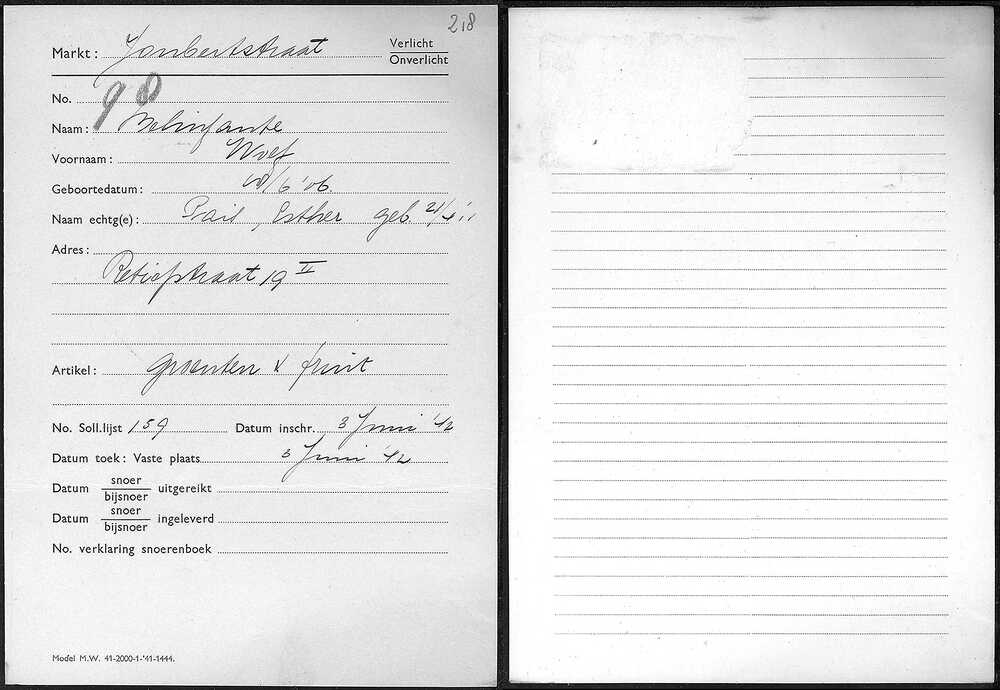 218
Markt: Joubertstraat Verlicht
Onverlicht
No. 98
Naam: Belinfante
Voornaam: Wolf
Geboortedatum: /6 '06.
Naam echtg(e): Pais, Esther geb. 21/
Adres:
Retiefstraat 19 II
Artikel: groenten & fruit
No. Soll.lijst 159 Datum inschr. 3 Juni '42
Datum toek: Vaste plaats 3 Juni '42
Datum snoer
bijsnoer uitgereikt
Datum snoer
bijsnoer ingeleverd
No. verklaring snoerenboek
Model M.W. 41-2000-1-'41-1444.